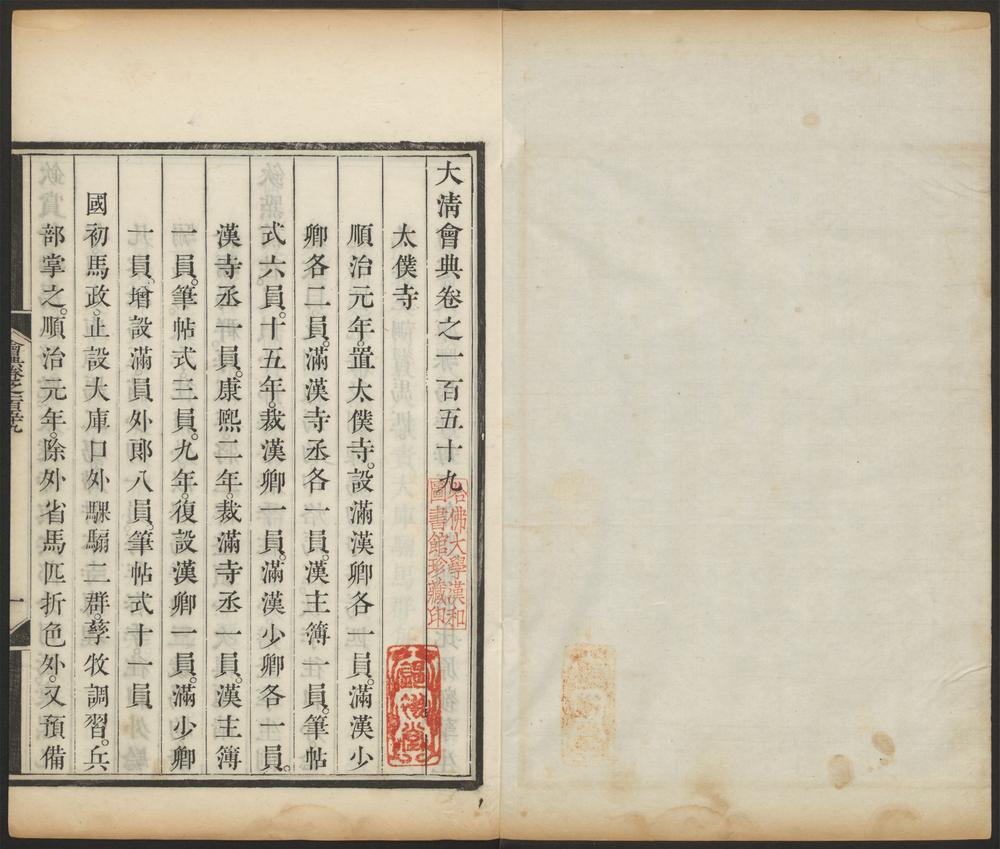 大清會典卷之一百五十九
太僕寺
順治元年。置太僕寺。設滿漢卿各一員。滿漢少
卿各二員。滿漢寺丞各一員。漢主簿一員。筆帖
式六員。十五年。裁漢卿一員。滿漢少卿各一員。
漢寺丞一員。康熙二年。裁滿寺丞一員。漢主簿
一員。筆帖式三員。九年。復設漢卿一員。滿少卿
一員。增設滿員外郎八員。筆帖式十一員
國初馬政。止設大庫口外騍騸二群。孳牧調習。兵
部掌之。順治元年。除外省馬匹折色外。又預備
會典卷之一百五十九
一
哈佛大學漢和
圖書館珍藏印